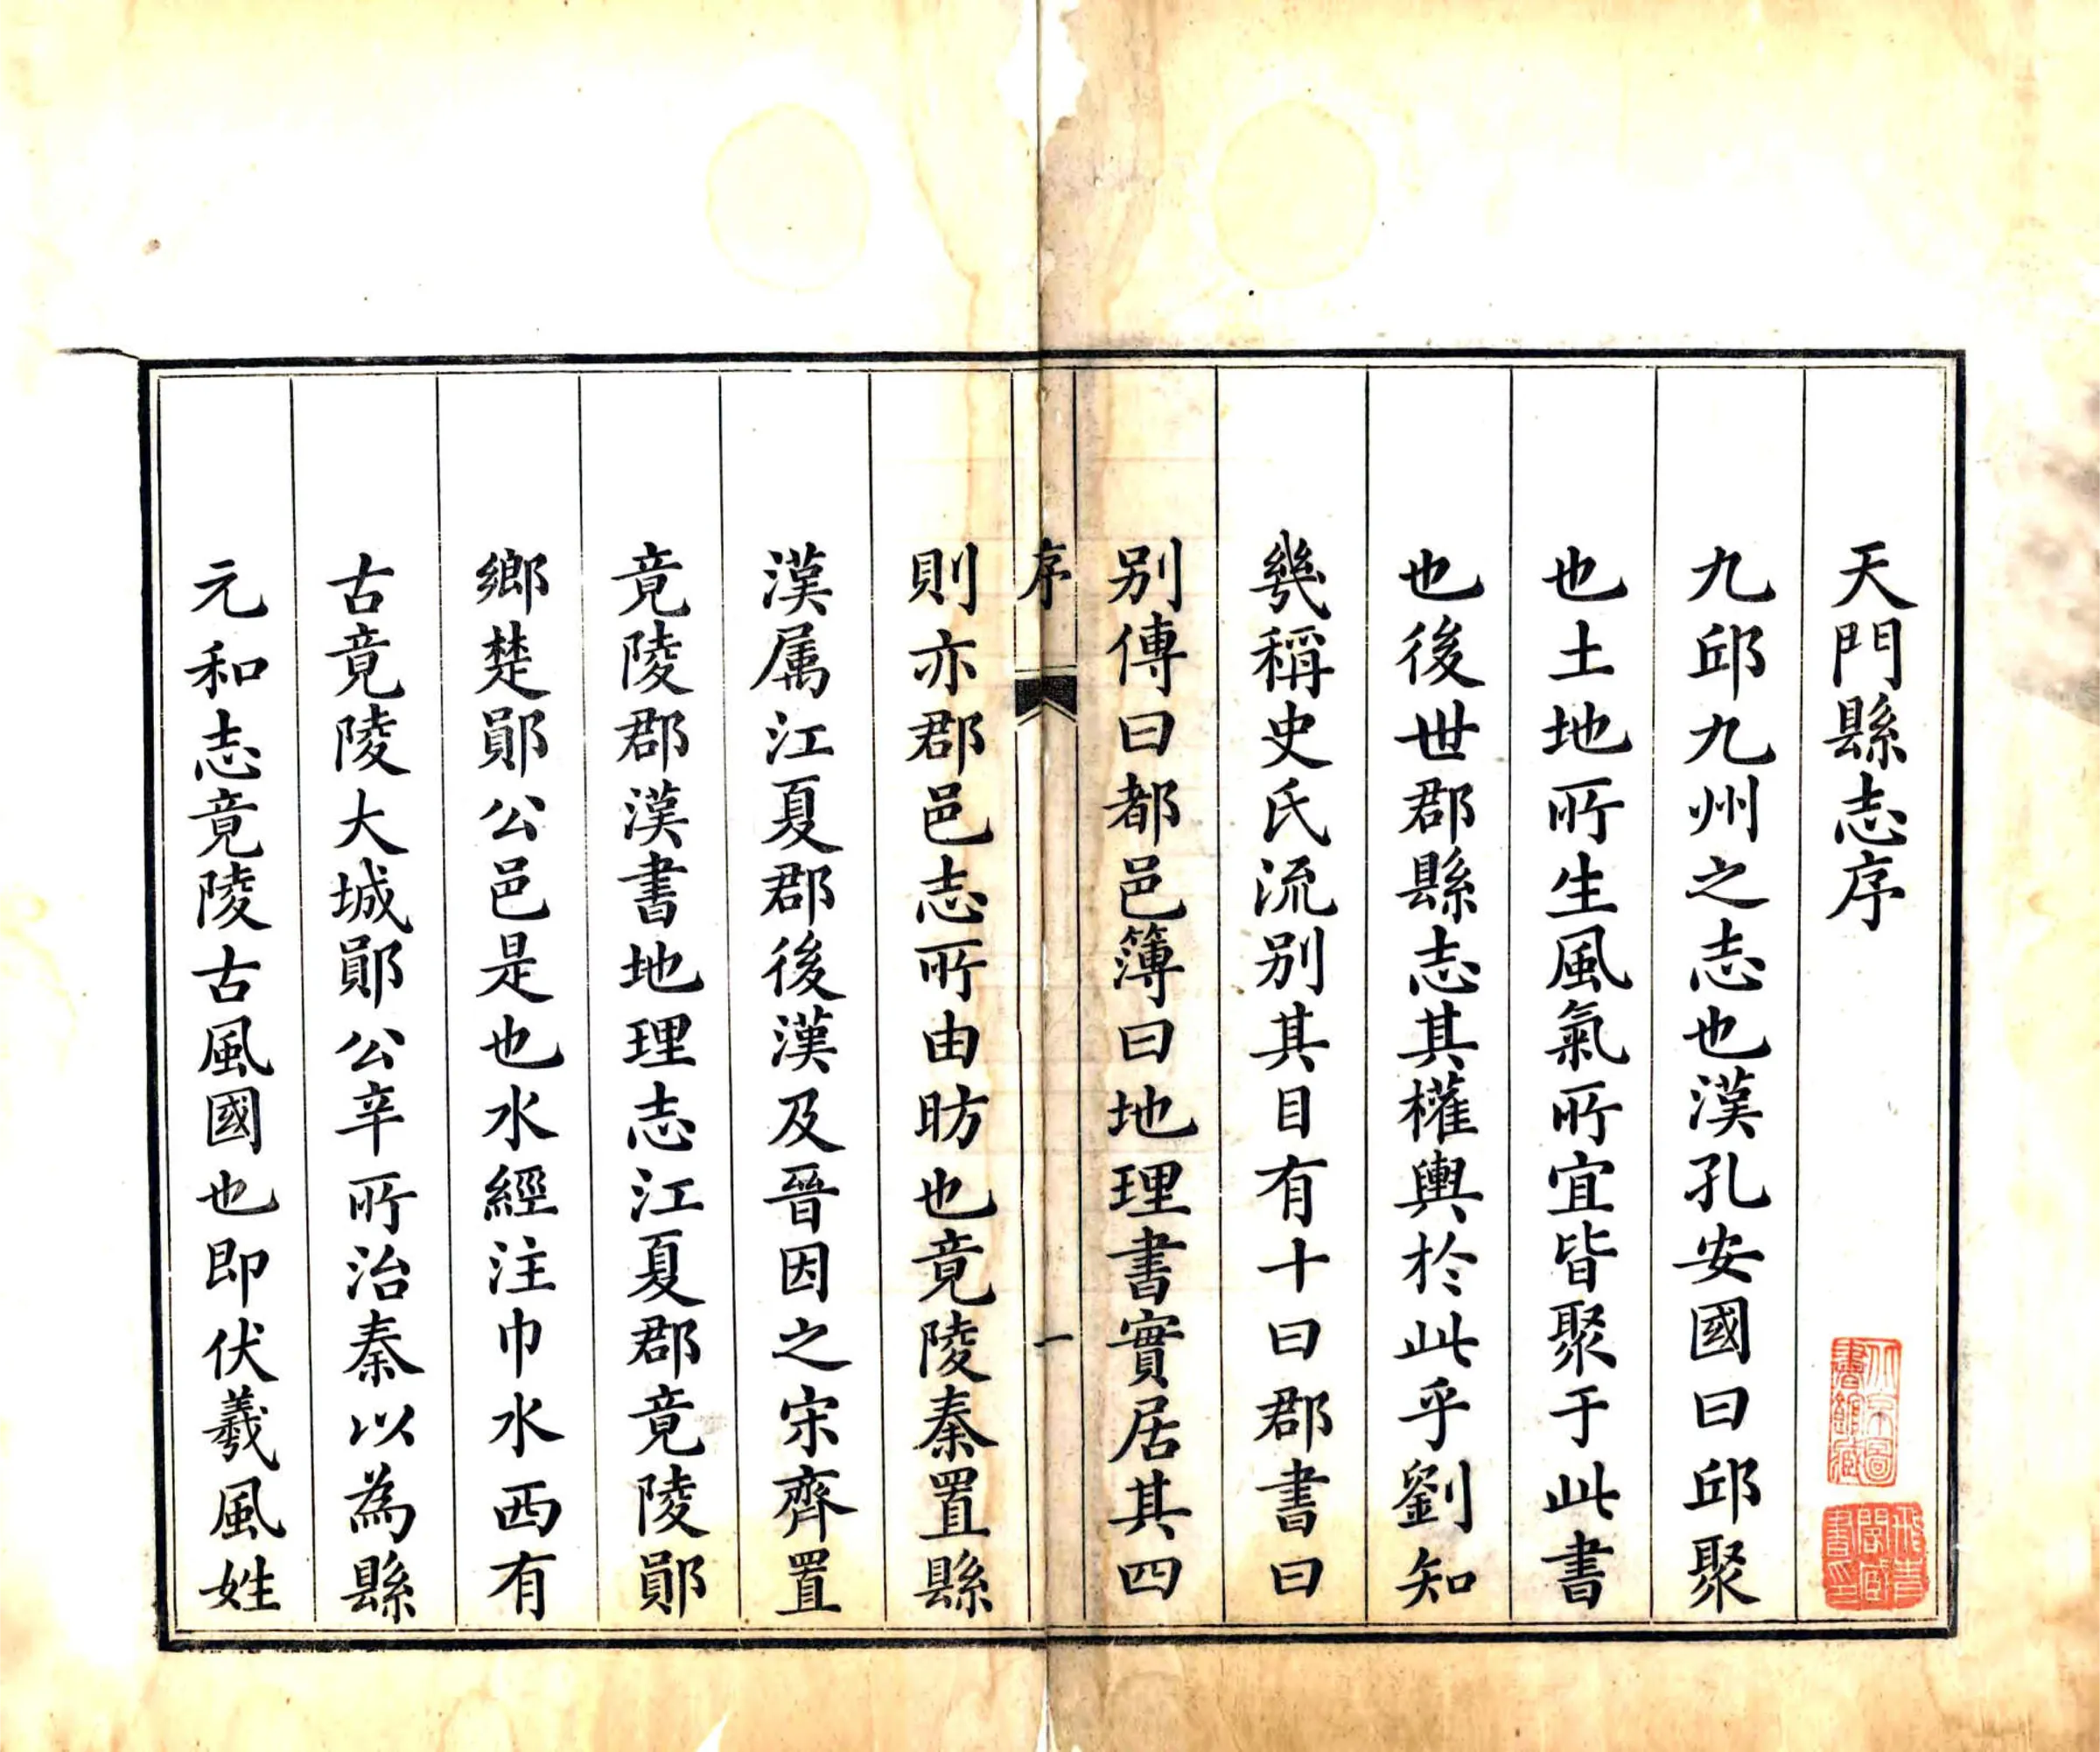 天門縣志序
九邱九州之志也漢孔安國曰邱聚
也土地所生風氣所宜皆聚于此書
也後世郡縣志其權輿於此乎劉知
幾稱史氏流别其目有十曰郡書曰
别傳曰都邑簿曰地理書實居其四
序
一
則亦郡邑志所由昉也竟陵秦置縣
漢属江夏郡後漢及晉因之宋齊置
竟陵郡漢書地理志江夏郡竟陵鄖
鄉楚鄖公邑是也水經注巾水西有
古竟陵大城鄖公辛所治秦以為縣
元和志竟陵古風國也即伏羲風姓